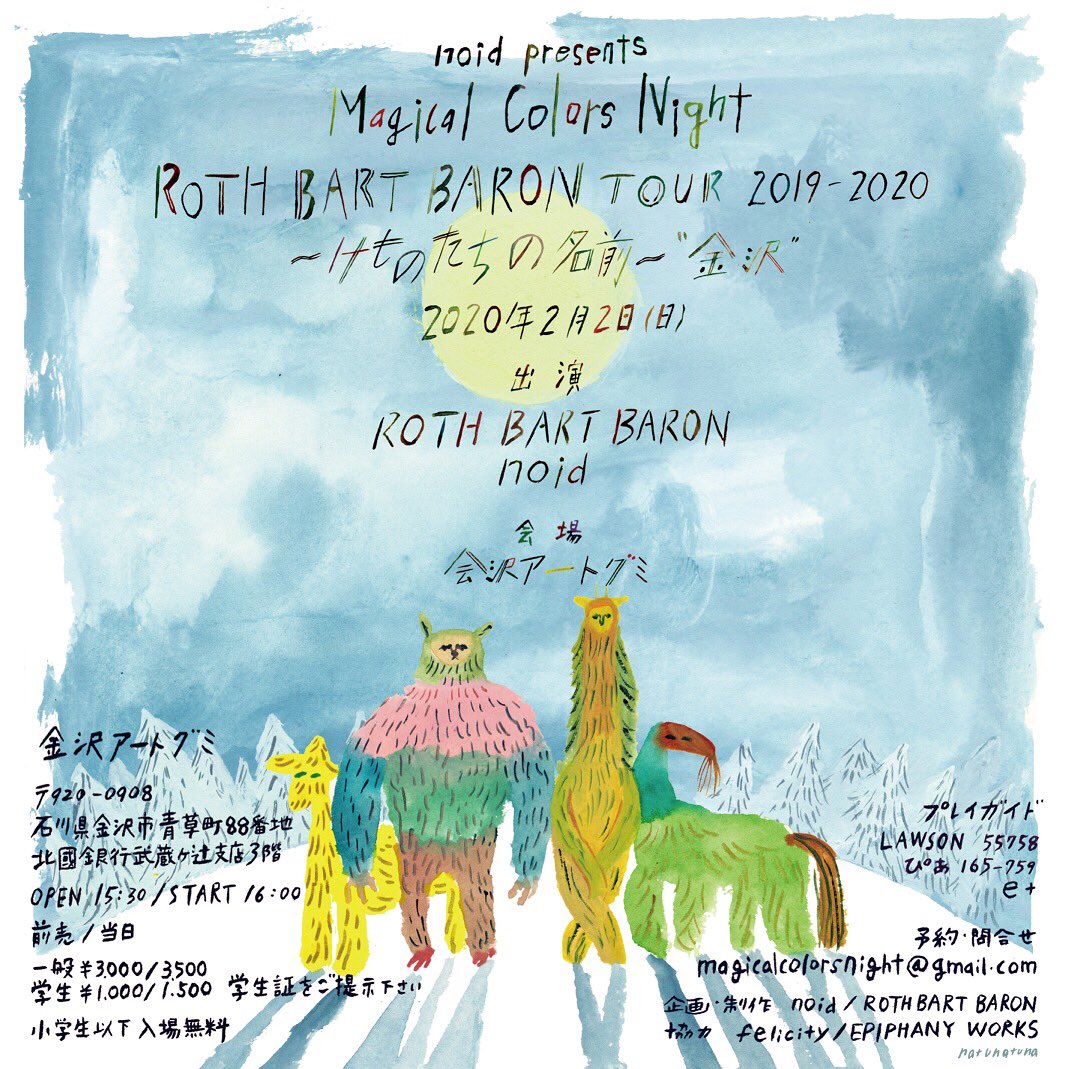 noid presents
Magical Colors Night
ROTH BART BARON TOUR 2019-2020
～けものたちの名前～"金沢"
2020年2月2日(日)
出演
ROTH BART BARON
noid
会場
金沢アートグミ
金沢アートグミ
〒920-0908
石川県金沢市青草町88番地
北國銀行武蔵ヶ辻支店3階
OPEN 15:30/START 16:00
前売/当日
一般¥3.000/3.500
学生¥1.000/1.500 学生証をご提示下さい
小学生以下入場無料
プレイガイド
LAWSON 55758
ぴあ 165-759
e+
予約・問合せ
magicalcolorsnight@gmail.com
企画・制作 noid/ROTH BART BARON
協力 felicity/EPIPHANY WORKS
natunatuna